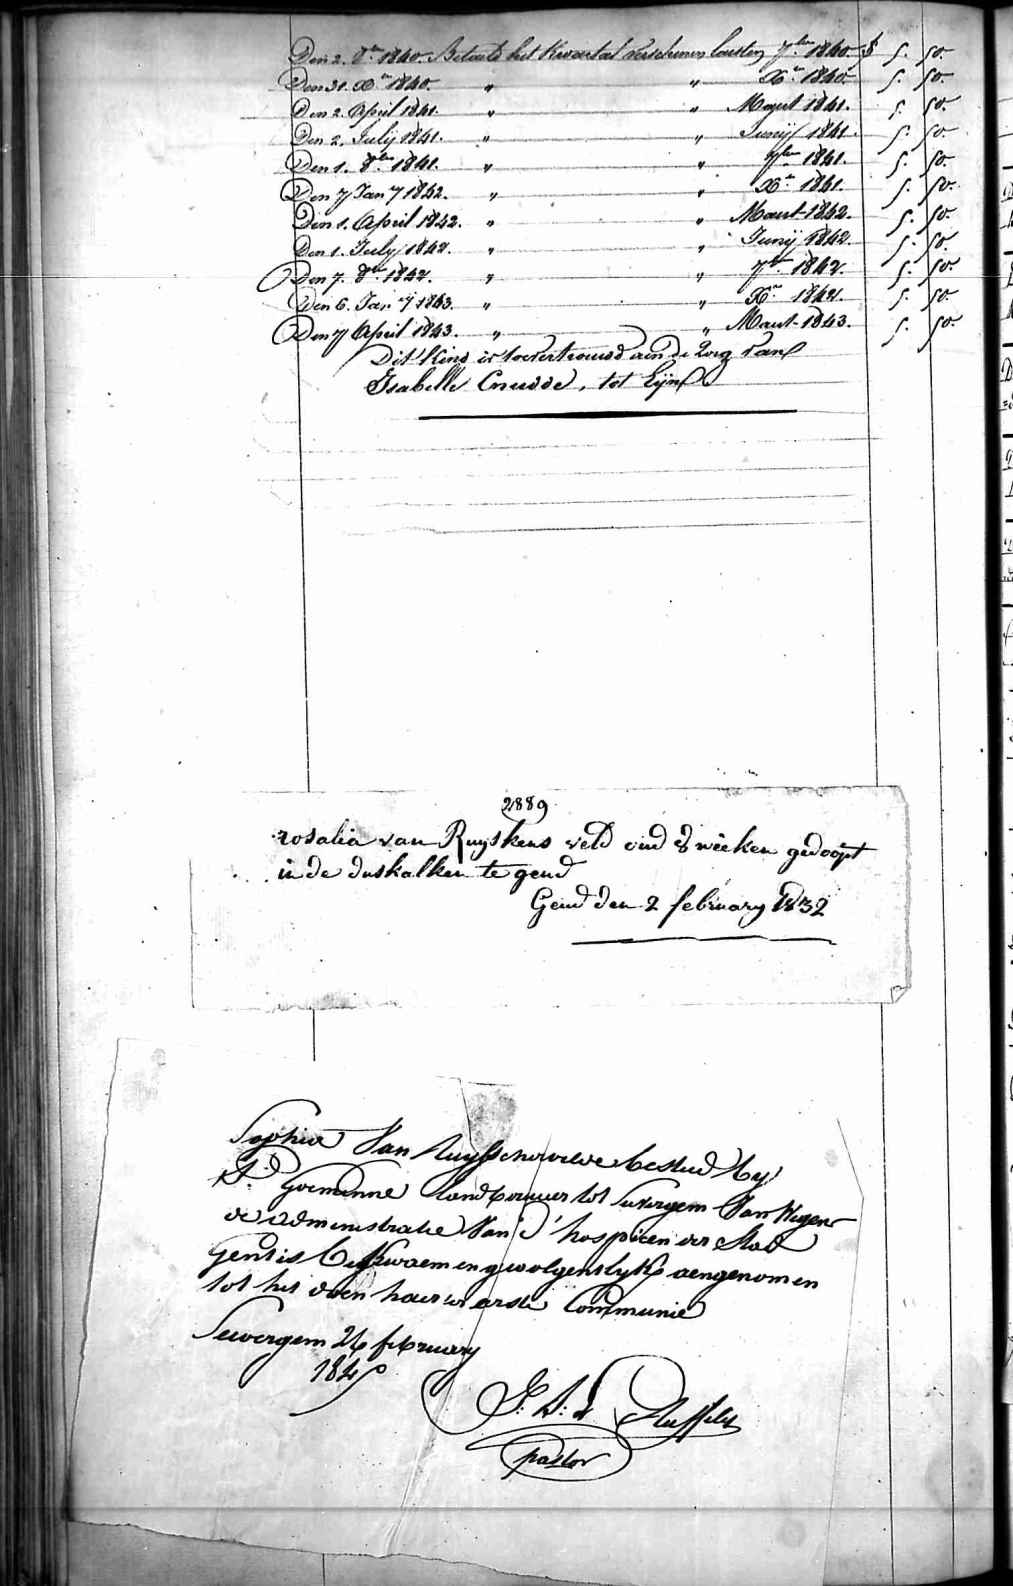 Den 2. 8er 1840. Betaald het kwartael verschenen laesten 7ber 1840. f 5. 50.
Den 31. Xer 1840. " " Xer 1840. 5. 50.
Den 2. April 1841. " " Maert 1841. 5. 50.
Den 2. July 1841. " " Junij 1841. 5. 50.
Den 1. 8ber 1841. " " 7ber 1841. 5. 50.
Den 7 Jany 1842. " " Xer 1841. 5. 50.
Den 1. April 1842. " " Maert 1842. 5. 50.
Den 1. July 1842. " " Junij 1842. 5. 50.
Den 7. 8er 1842. " " 7er 1842. 5. 50.
Den 6. Jany 1843. " " Xer 1842. 5. 50.
Den 7 April 1843. " " Maert 1843. 5. 50.
Dit kind is toevertrouwd aen de zorg van
Isabelle Cnudde, tot Eyne
2889
rosalia van Ruyskens veld oud 8 weeken gedoopt
in de duskalken te gend
Gend den 2 february 1832
Sophia Van Ruysschevelde besteed by
Goeminne landbouwer tot Severgem Van wegen
de administratie Van d' hospicen der Stad
Gent is bekwaem en gevolgentlyk aengenomen
tot het doen haerer eerste Communie
Severgem 26 february
1845
J: B: de Ruffelet
pastor